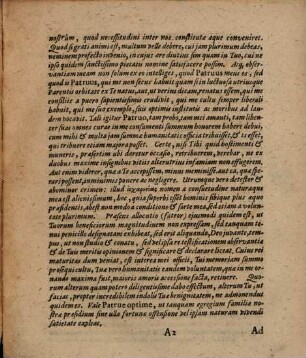 nostrûm, quod necessitudini inter nos constituta aque conveniret.
Quod si grati animi est, multum velle debere, cui jam plurimum debeas,
neminem profecto invenio, in cujus are dintius sim quam in Tuo, cui ne
ipso quidem sanctissimo pietatis nomine satisfacere possim. Atq; obser-
vantiam meam non solum ex eo intelliges, quod Patruus meus es, sed
quod is Patruus, qui me non secus habuit quam si in luctuosa utriusque
Parentis orbitate ex Te natus, aut, ut verius dicam, renatus essem, qui me
consiliis a puero sapientissimis erudivit, qui me cultu semper liberali
habuit, qui me suo exemplo, sui optimo instituto ac moribus ad lau-
dem vocavit. Tali igitur Patruo, tam probo, tam mei amanti, tam liben-
ter suas nonnes curas in me communiter summum honorem habere debeo,
cum mihi & multa jam summa humanitatis officia tribuisset, & is esset,
qui tribuere etiam majora posset. Certe, nisi Tibi quod hujusmodi &
muneris, prasertim ubi daretur occasio, retribuerem, vererer, ne ex
duobus maxime insignibus vitiis alterutrius infamiam non effugerem.
Aut enim viderer, quae a Te accepissem, minus meminisse, aut ea, qua fe-
rari possent, animi minus ponere ac negligere. Utrumque vero detestor &
abominor crimen: illud
mea est alienissimum, hoc, quia superbi esset hominis ibique plus aquo
prasidentis, abest quam a modica conditione & sorte mea, tam etiam a vo-
luntate plurimum. Prasens allocutio (fateor) ejusmodi quidem est, ut
Tuorum beneficiorum magnitudinem non expressam, sed tanquam te-
nui penicillo designatam exhibeat, sed erit aliquando, Deo juvante, tem-
pus, ut non studio & conatu, sed vel ipsa re testificationem observantia
& de Tuis meritu opinionem & significare & declarare liceat. Cujus rei
maturitas dum veniat, est interea mei officii, Tui memoriam summo
prosequi cultu, Tua vero humanitatis eandem voluntatem, qua in me or-
nando maxima fuit, majore amoris accessione facta, retinere. Quo-
rum alterum quam potero diligentissime dabo effectum, alterum Tu, ut
facias, propter incredibilem indolis Tua benignitatem, ne admonendus
quidem es. Vale Patrue optime, ut tanquam egregium familia no-
stra prasidium sine ulla fortuna offensione vel ipsam naturam vivendi
satietate expleas.
A2
Ad